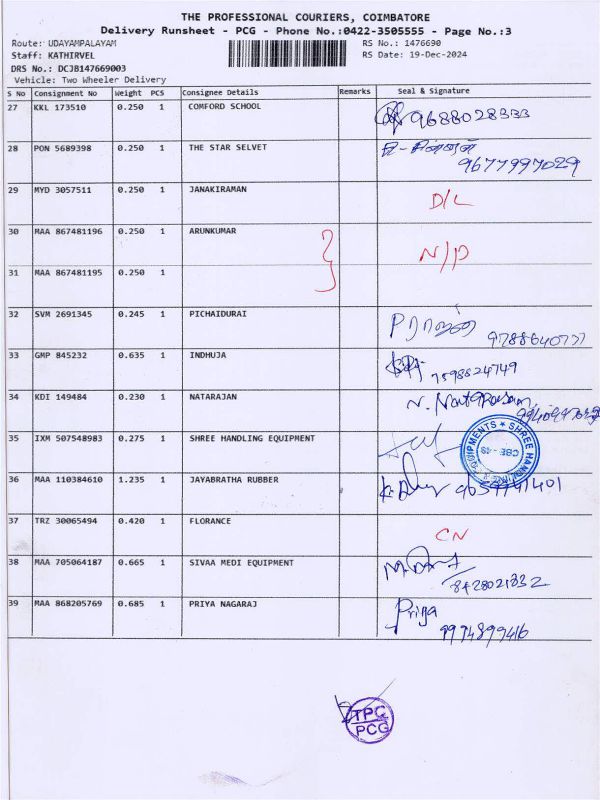 THE PROFESSIONAL COURIERS, COIMBATORE
Delivery Runsheet - PCG - Phone No.:0422-3505555 - Page No.:3
Route: UDAYAMPALAYAM RS No.: 1476690
Staff: KATHIRVEL RS Date: 19-Dec-2024
DRS No.: DCJB147669003
Vehicle: Two Wheeler Delivery
S No Consignment No Weight PCS Consignee Details Remarks Seal & Signature
27 KKL 173510 0.250 1 COMFORD SCHOOL 9688028333
28 PON 5689398 0.250 1 THE STAR SELVET
9677997029
29 MYD 3057511 0.250 1 JANAKIRAMAN D/L
30 MAA 867481196 0.250 1 ARUNKUMAR N/P
31 MAA 867481195 0.250 1
32 SVM 2691345 0.245 1 PICHAIDURAI
33 GMP 845232 0.635 1 INDHUJA 7598824749
34 KDI 149484 0.230 1 NATARAJAN N. Natarajan
35 IXM 507548983 0.275 1 SHREE HANDLING EQUIPMENT SHREE HANDLING EQUIPMENTS
36 MAA 110384610 1.235 1 JAYABRATHA RUBBER
37 TRZ 30065494 0.420 1 FLORANCE CN
38 MAA 705064187 0.665 1 SIVAA MEDI EQUIPMENT
8428021832
39 MAA 868205769 0.685 1 PRIYA NAGARAJ Priya
9994899416
TPC
PCG